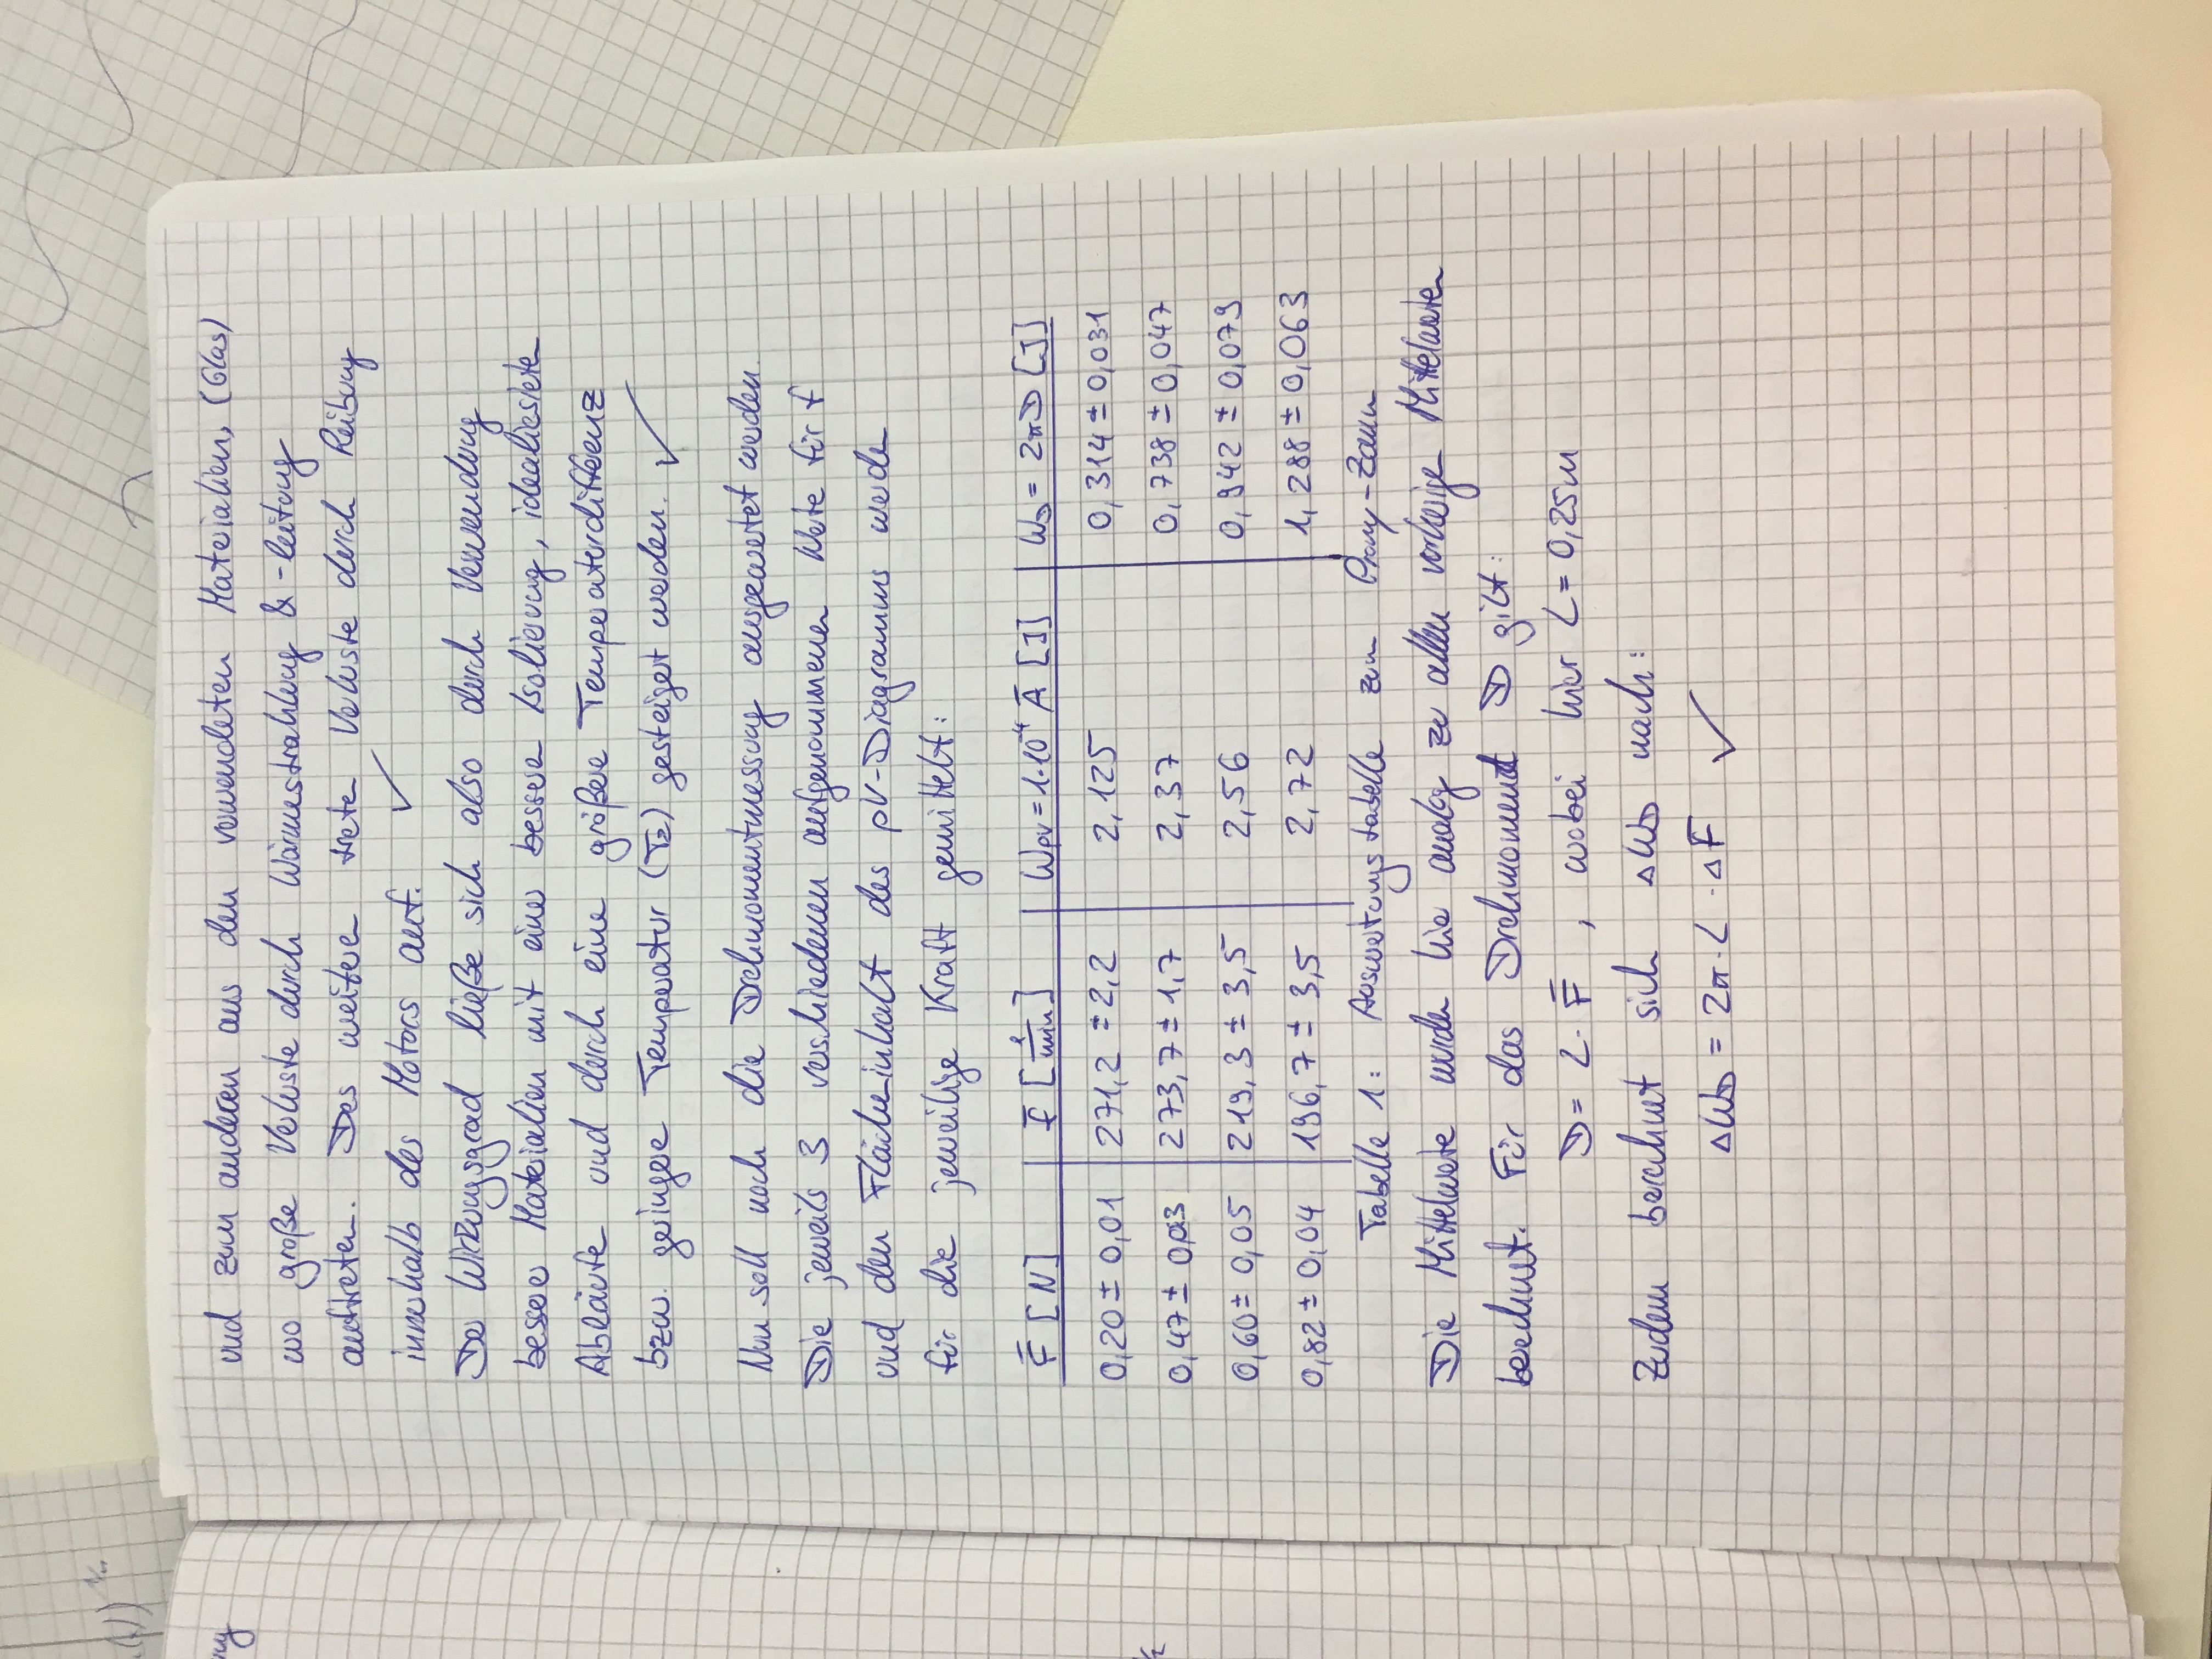 und zum anderen aus den verwendeten Materialien, (Glas)
wo große Verluste durch Wärmestrahlung & -leitung
auftreten. Des weiteren treten Verluste durch Reibung
innerhalb des Motors auf. ✓
Der Wirkungsgrad ließe sich also durch Verwendung
besserer Materialien mit einer besseren Isolierung, idealiesierten
Abläufen und durch eine größere Temperaturdifferenz
bzw. geringere Temperatur (T2) gesteigert werden. ✓
Nun soll noch die Drehmomentmessung ausgewertet werden.
Die jeweils 3 verschiedenen aufgenommenen Werte für f
und den Flächeninhalt des pV-Diagramms werden
für die jeweilige Kraft gemittelt:
F̄ [N] | f̄ [1/min] | Wpv = 1·10⁻⁴ Ā [J] | WD = 2πD [J]
0,20 ± 0,01 | 271,2 ± 2,2 | 2,125 | 0,314 ± 0,031
0,47 ± 0,03 | 273,7 ± 1,7 | 2,37 | 0,738 ± 0,047
0,60 ± 0,05 | 219,3 ± 3,5 | 2,56 | 0,942 ± 0,079
0,82 ± 0,04 | 196,7 ± 3,5 | 2,72 | 1,288 ± 0,063
Tabelle 1: Auswertungstabelle zum Prony-Zaum
Die Mittelwerte wurden hier analog zu allen vorherigen Mittelwerten
berechnet. Für das Drehmoment D gilt:
D = L · F̄ , wobei hier L = 0,25m
Zudem berechnet sich ΔWD nach:
ΔWD = 2π · L · ΔF̄ ✓